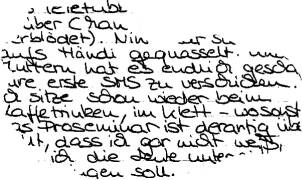 über C
erblödet). Nin
aufs Händi gequasselt
hat es endlich gescha
ure erste SMS zu verschicken.
sitze schon wieder beim
Kaffetrinken, im Klett - wo sonst
as Proseminar ist derartig
dass ich gar nicht weiß,
ich die Leute unter
gen soll.